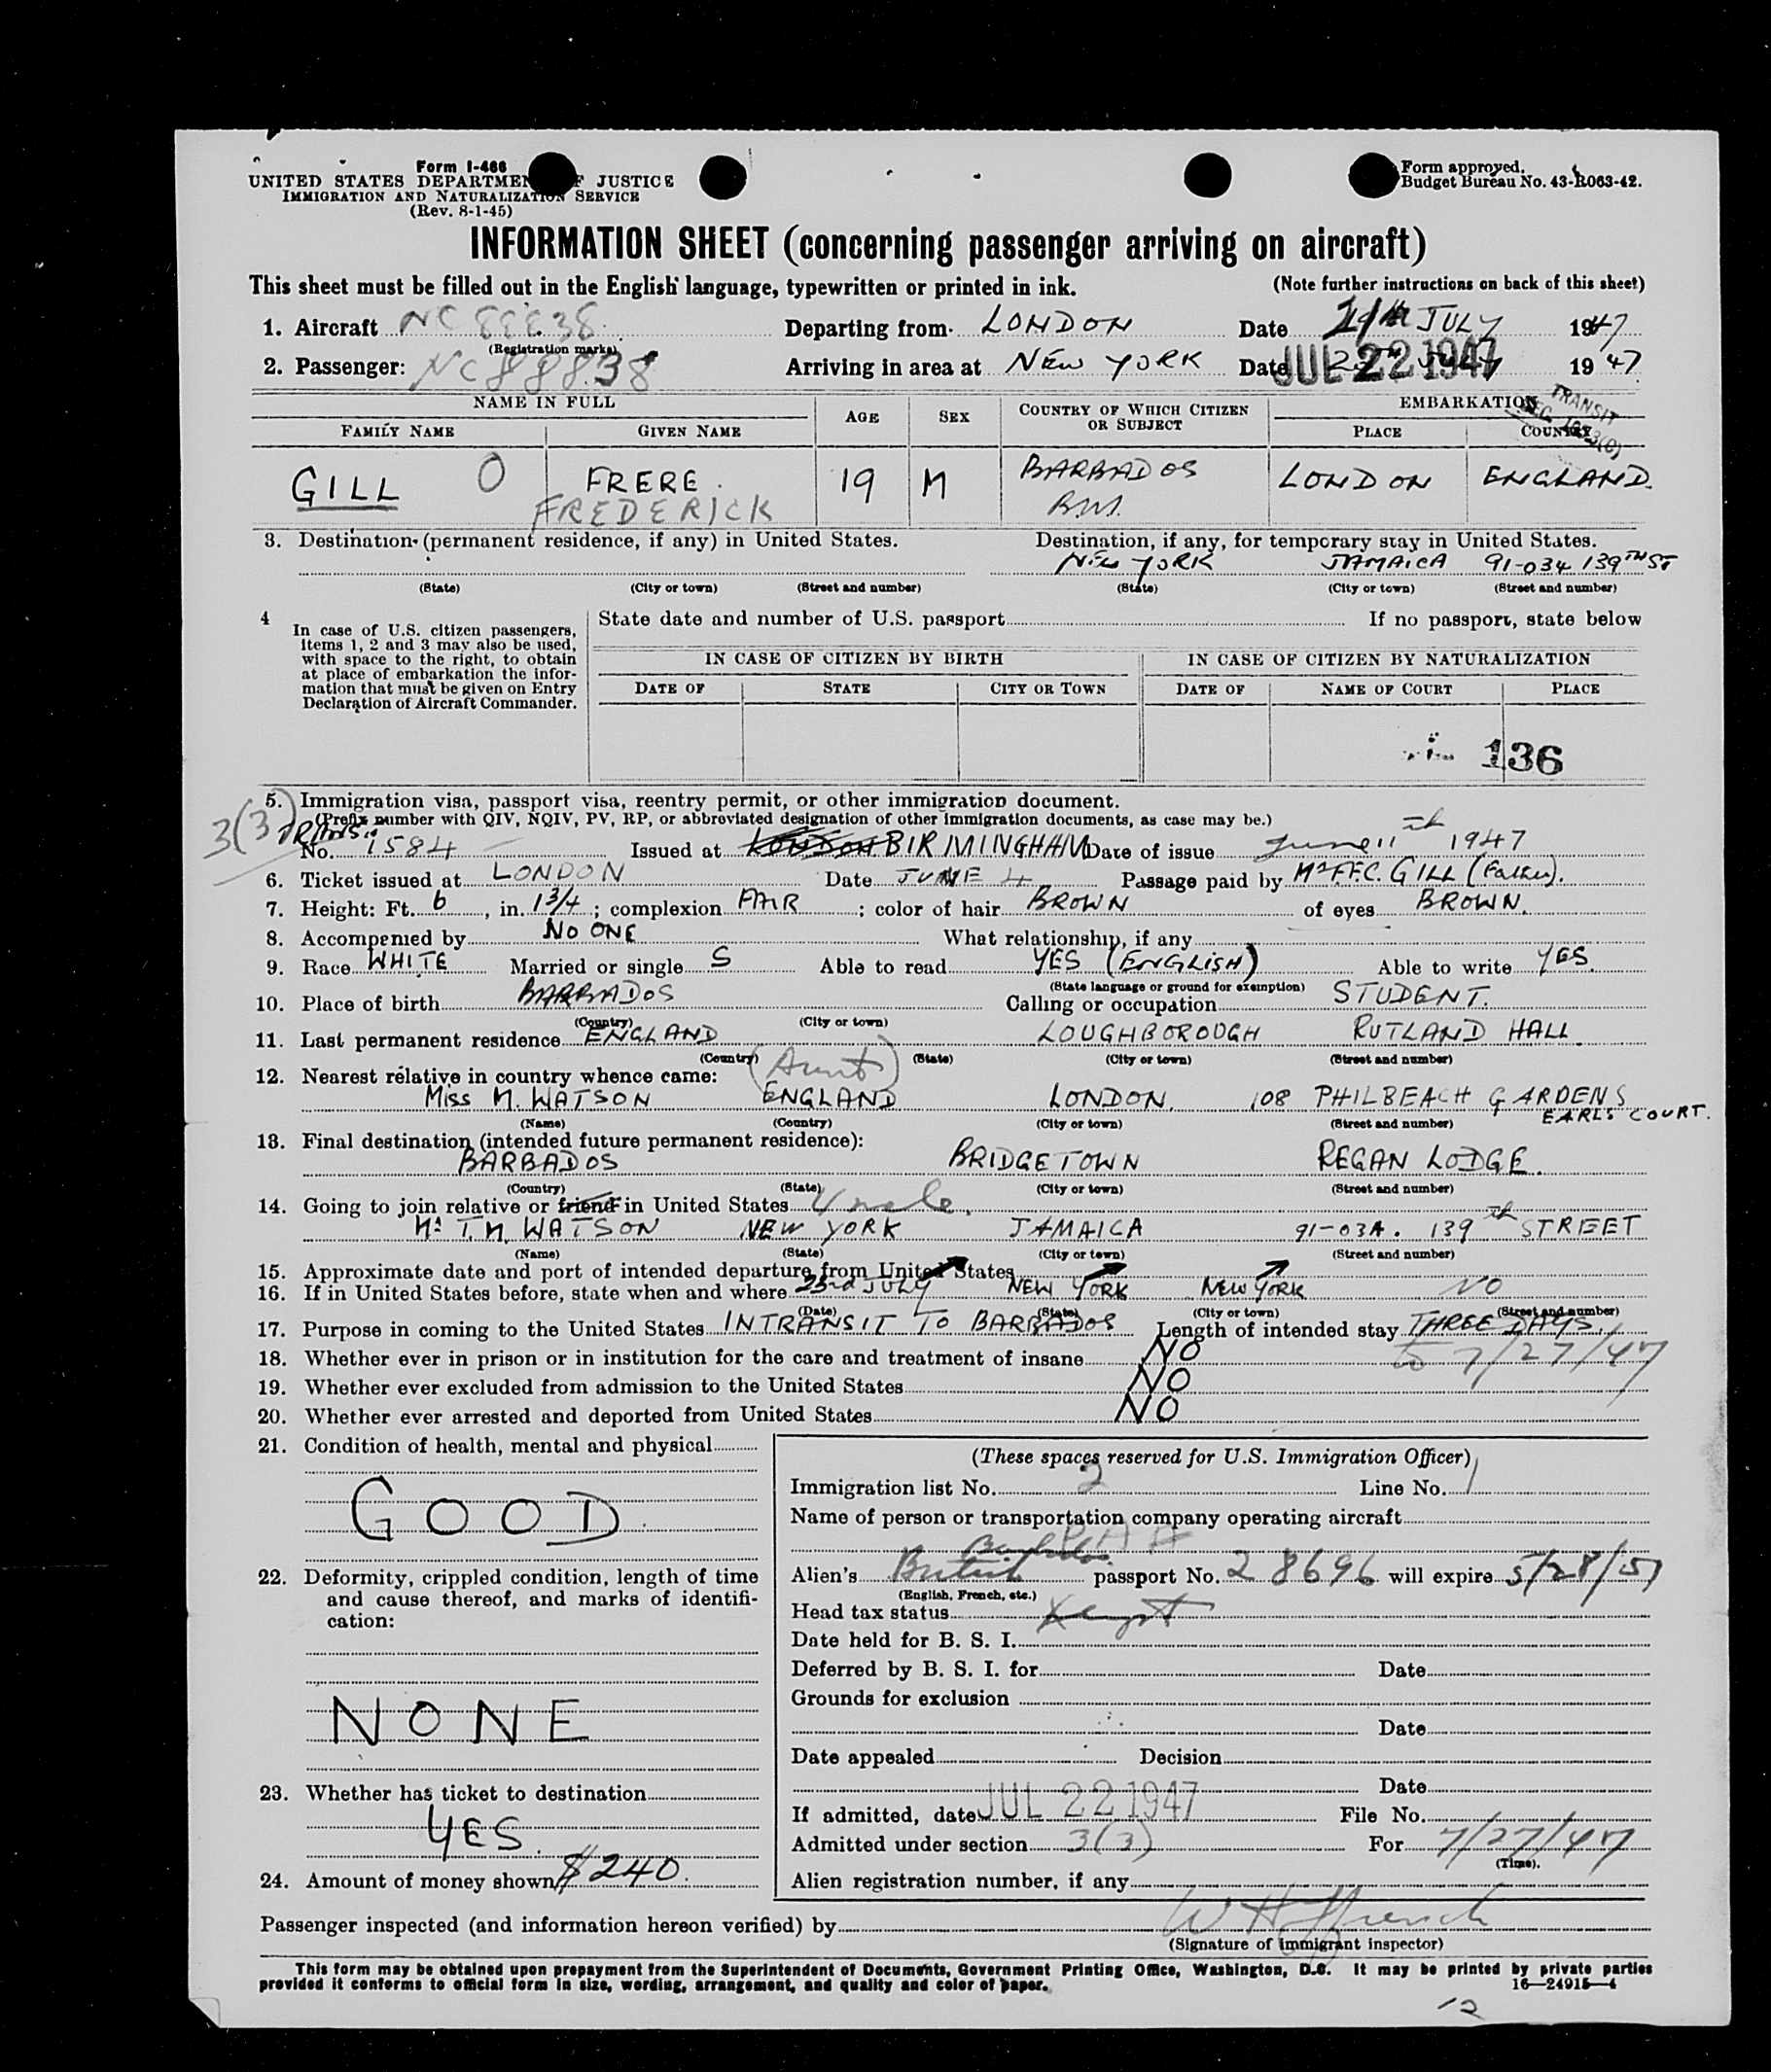 Form I-466
UNITED STATES DEPARTMENT OF JUSTICE
IMMIGRATION AND NATURALIZATION SERVICE
(Rev. 8-1-45)
Form approved.
Budget Bureau No. 43-R063-42.
INFORMATION SHEET (concerning passenger arriving on aircraft)
This sheet must be filled out in the English language, typewritten or printed in ink. (Note further instructions on back of this sheet)
1. Aircraft NC 88838 Departing from LONDON Date JULY 1947
(Registration marks)
2. Passenger: NC 88838 Arriving in area at NEW YORK Date JUL 22 1947 1947
NAME IN FULL AGE SEX COUNTRY OF WHICH CITIZEN OR SUBJECT EMBARKATION TRANSIT
FAMILY NAME GIVEN NAME PLACE COUNTRY
GILL O FRERE. 19 M BARBADOS LONDON ENGLAND.
FREDERICK B.W.I.
3. Destination (permanent residence, if any) in United States. Destination, if any, for temporary stay in United States.
NEW YORK JAMAICA 91-034 139TH ST
(State) (City or town) (Street and number) (State) (City or town) (Street and number)
4 In case of U.S. citizen passengers, items 1, 2 and 3 may also be used, with space to the right, to obtain at place of embarkation the information that must be given on Entry Declaration of Aircraft Commander.
State date and number of U.S. passport If no passport, state below
IN CASE OF CITIZEN BY BIRTH IN CASE OF CITIZEN BY NATURALIZATION
DATE OF STATE CITY OR TOWN DATE OF NAME OF COURT PLACE
136
5. Immigration visa, passport visa, reentry permit, or other immigration document.
3(3) (Prefix number with QIV, NQIV, PV, RP, or abbreviated designation of other immigration documents, as case may be.)
TRANS.
No. 1584 Issued at LONDON BIRMINGHAM Date of issue June 11th 1947
6. Ticket issued at LONDON Date JUNE 4 Passage paid by Mr F.F.C. GILL (Father).
7. Height: Ft. 6, in. 1 3/4; complexion FAIR; color of hair BROWN of eyes BROWN.
8. Accompanied by NO ONE What relationship, if any
9. Race WHITE Married or single S Able to read YES (ENGLISH) Able to write YES.
(State language or ground for exemption)
10. Place of birth BARBADOS Calling or occupation STUDENT.
(Country) (City or town)
11. Last permanent residence ENGLAND LOUGHBOROUGH RUTLAND HALL.
(Country) (State) (City or town) (Street and number)
12. Nearest relative in country whence came: (Aunt)
MISS M. WATSON ENGLAND LONDON. 108 PHILBEACH GARDENS
EARLS COURT.
(Name) (Country) (City or town) (Street and number)
13. Final destination (intended future permanent residence):
BARBADOS BRIDGETOWN REGAN LODGE.
(Country) (State) (City or town) (Street and number)
14. Going to join relative or friend in United States Uncle.
Mr T.M. WATSON NEW YORK JAMAICA 91-03A. 139th STREET
(Name) (State) (City or town) (Street and number)
15. Approximate date and port of intended departure from United States
16. If in United States before, state when and where 23rd JULY NEW YORK NEW YORK NO
(Date) (State) (City or town) (Street and number)
17. Purpose in coming to the United States INTRANSIT TO BARBADOS Length of intended stay THREE DAYS.
18. Whether ever in prison or in institution for the care and treatment of insane NO to 7/27/47
19. Whether ever excluded from admission to the United States NO
20. Whether ever arrested and deported from United States NO
21. Condition of health, mental and physical
GOOD.
22. Deformity, crippled condition, length of time and cause thereof, and marks of identification:
NONE
23. Whether has ticket to destination
YES.
24. Amount of money shown $240.
(These spaces reserved for U.S. Immigration Officer)
Immigration list No. 2 Line No. 1
Name of person or transportation company operating aircraft
PAA
Barbados
Alien's British passport No. 28696 will expire 5/28/51
(English, French, etc.)
Head tax status Exempt
Date held for B. S. I.
Deferred by B. S. I. for Date
Grounds for exclusion
Date
Date appealed Decision
Date
If admitted, date JUL 22 1947 File No.
Admitted under section 3(3) For 7/27/47
(Time).
Alien registration number, if any
Passenger inspected (and information hereon verified) by W H Ffrench
(Signature of immigrant inspector)
This form may be obtained upon prepayment from the Superintendent of Documents, Government Printing Office, Washington, D.C. It may be printed by private parties
provided it conforms to official form in size, wording, arrangement, and quality and color of paper. 16—24915-4
12